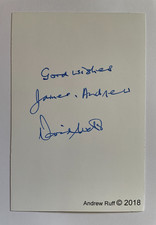 Good wishes
James, Andrew
Andrew Ruff © 2018